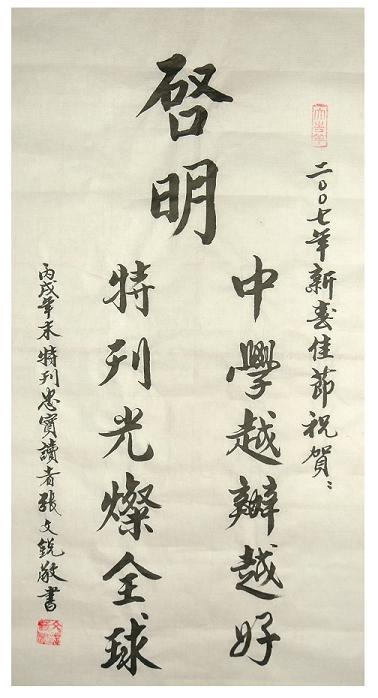 二〇〇七年新春佳節祝賀：
啓明
中學越辦越好
特刊光燦全球
丙戌年末特刊忠實讀者張文銳敬書